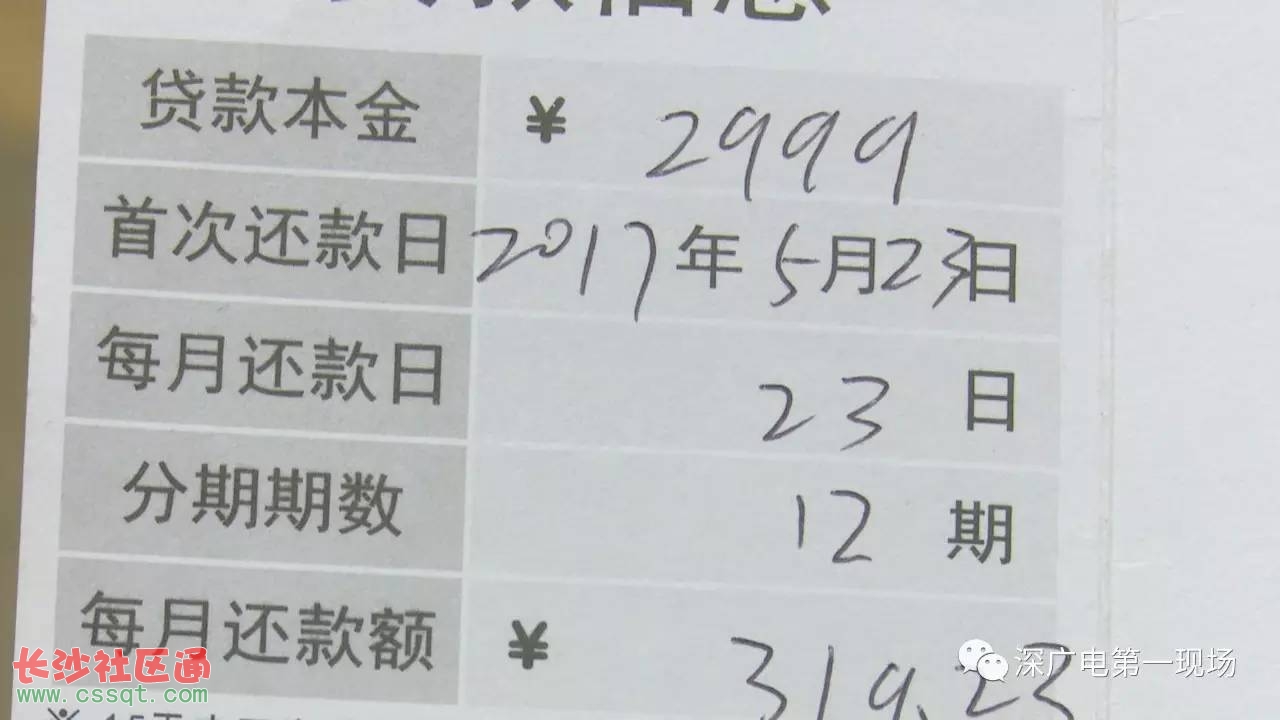 贷款信息
贷款本金 ¥ 2999
首次还款日 2017年5月23日
每月还款日 23 日
分期期数 12 期
每月还款额 ¥ 319.23
深广电第一现场
长沙社区通
www.cssqt.com